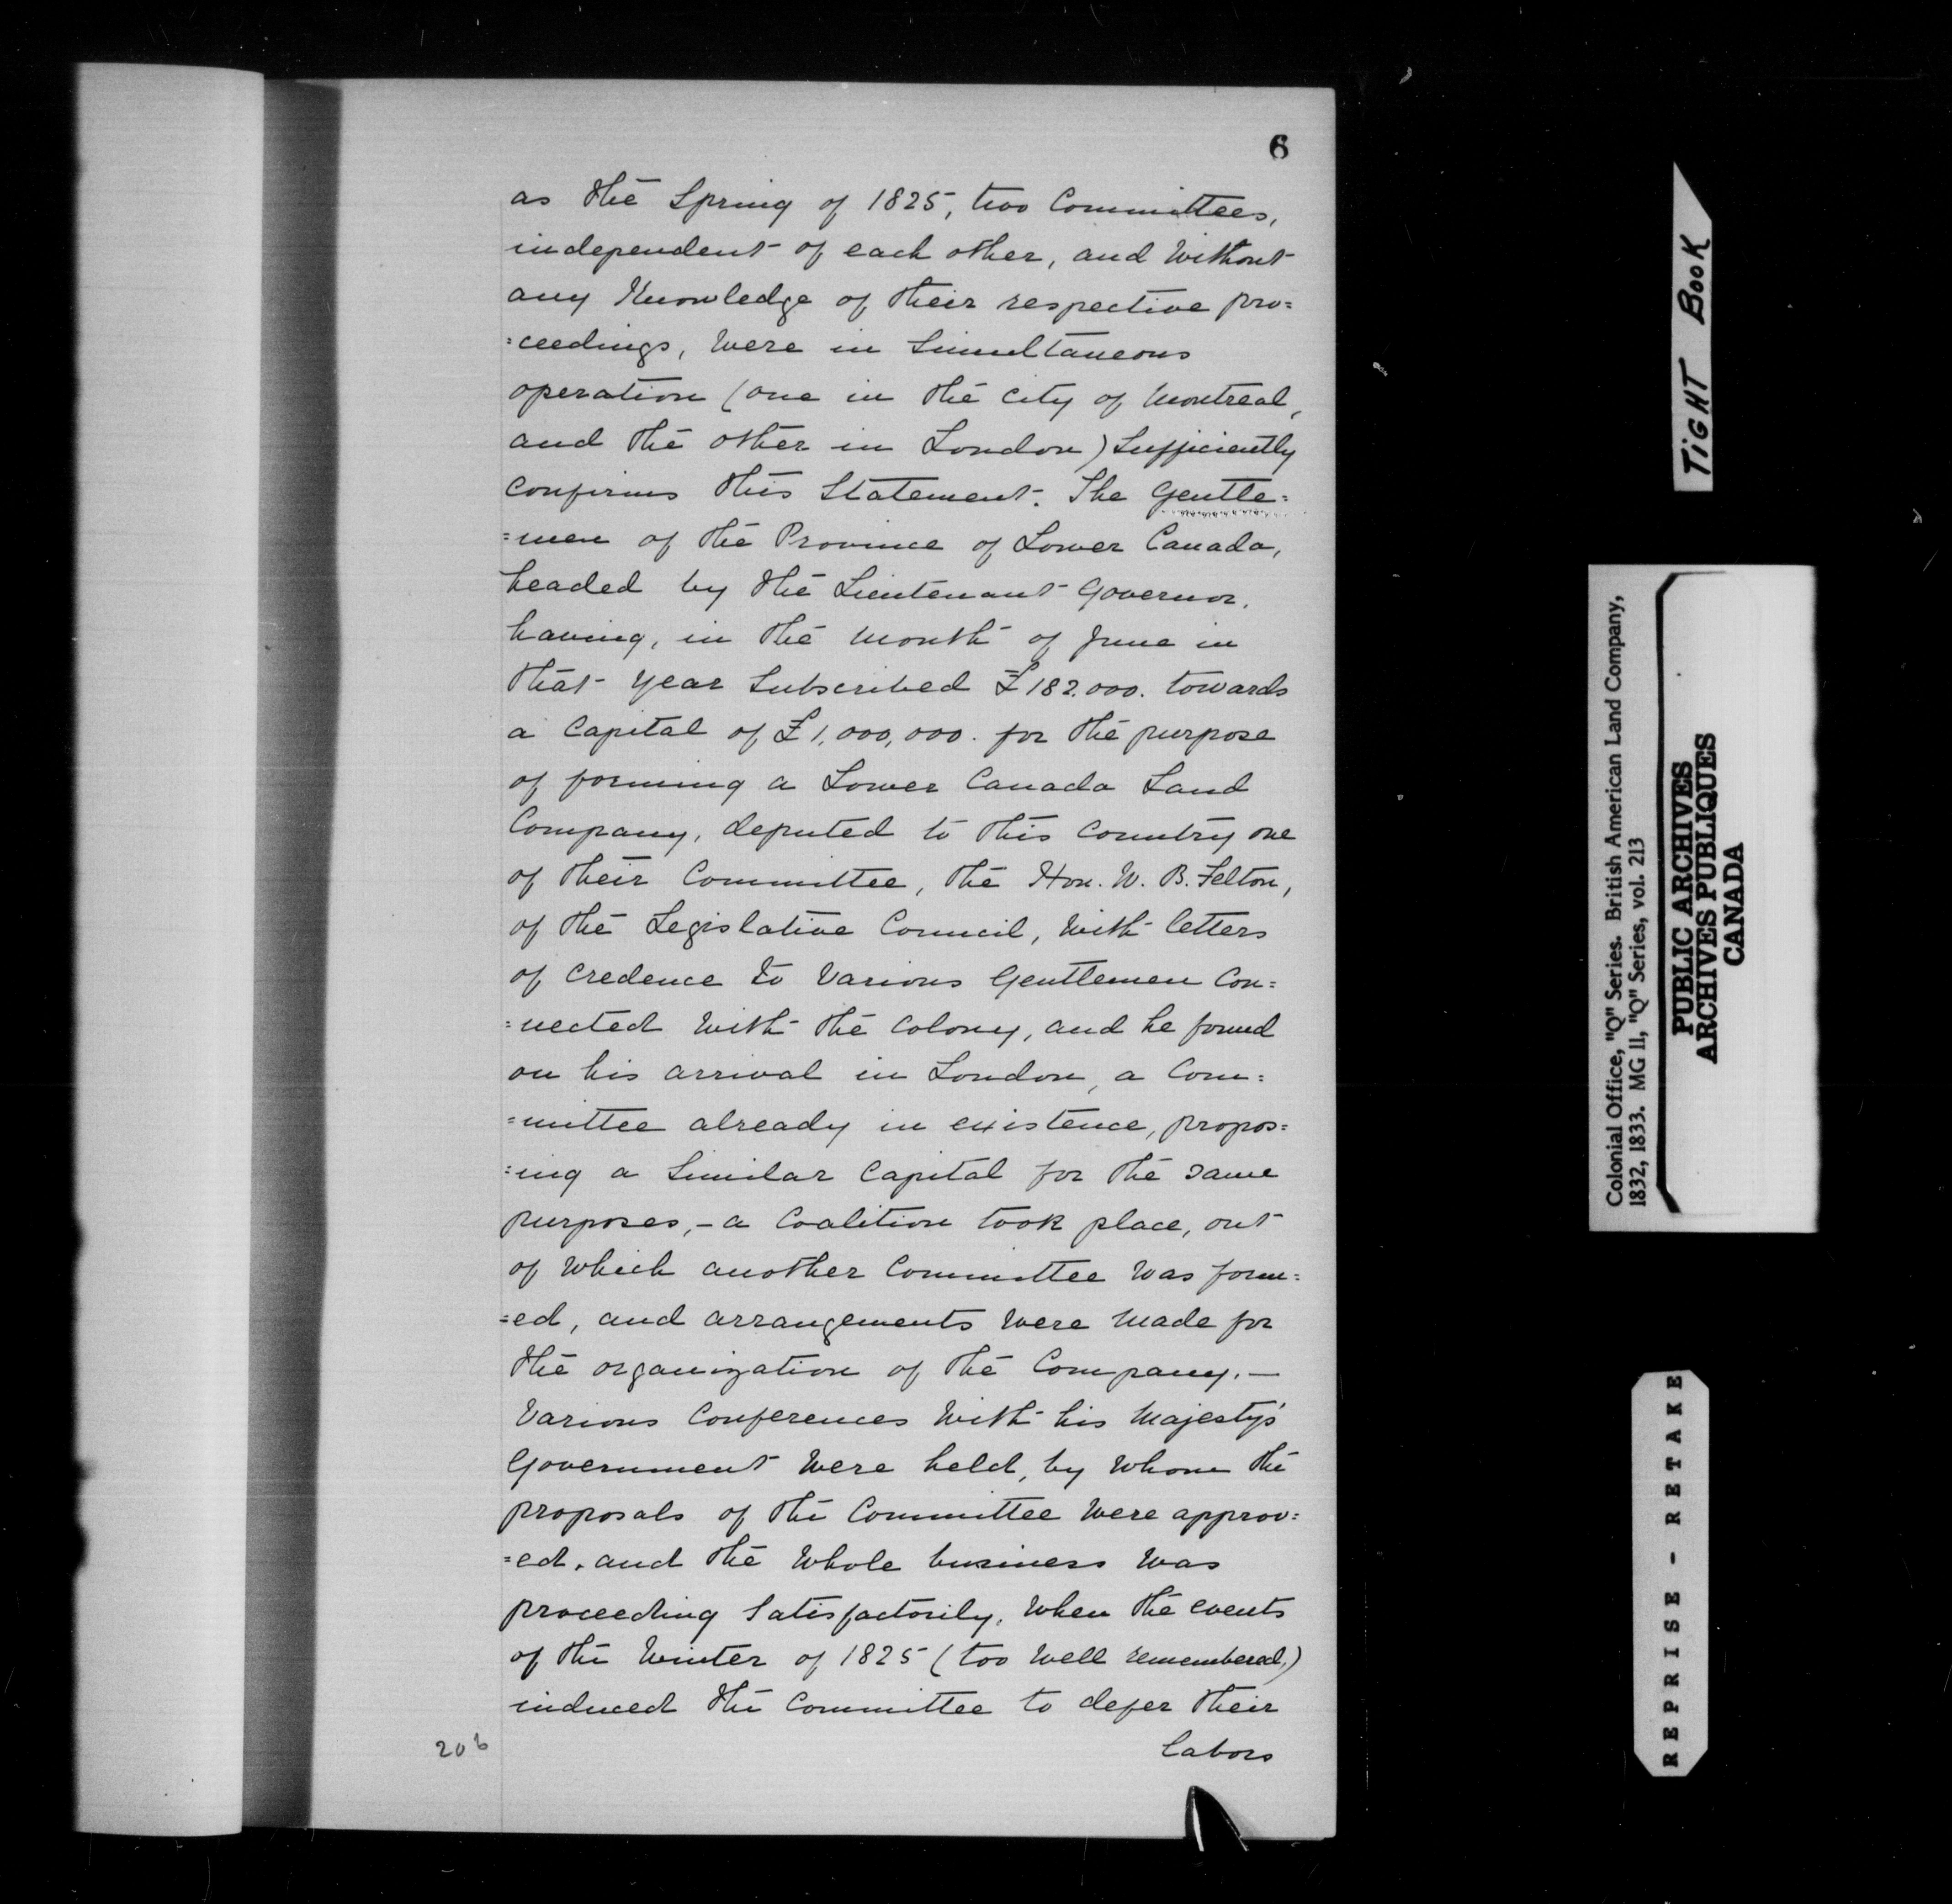 6
as the Spring of 1825, two Committees,
independent of each other, and without
any Knowledge of their respective pro=
=ceedings, were in Simultaneous
operation (one in the City of Montreal,
and the other in London) Sufficiently
confirms this Statement. The Gentle=
=men of the Province of Lower Canada,
headed by the Lieutenant Governor,
having, in the month of June in
that year Subscribed £182.000. towards
a Capital of £1,000,000. for the purpose
of forming a Lower Canada Land
Company, deputed to this Country one
of their Committee, the Hon. W. B. Felton,
of the Legislative Council, with letters
of credence to Various Gentlemen Con=
=nected with the Colony, and he found
on his arrival in London, a Com=
=mittee already in existence, propos=
=ing a Similar Capital for the same
purposes,- a Coalition took place, out
of which another Committee was form=
=ed, and arrangements were made for
the organization of the Company.—
Various Conferences with his Majesty's
Government were held, by whom the
proposals of the Committee were approv=
=ed. and the whole business was
proceeding Satisfactorily, when the events
of the Winter of 1825 (too well remembered,)
induced the Committee to defer their
labors
206
TIGHT BOOK
Colonial Office, "Q" Series. British American Land Company,
1832, 1833. MG 11, "Q" Series, vol. 213
PUBLIC ARCHIVES
ARCHIVES PUBLIQUES
CANADA
REPRISE - RETAKE